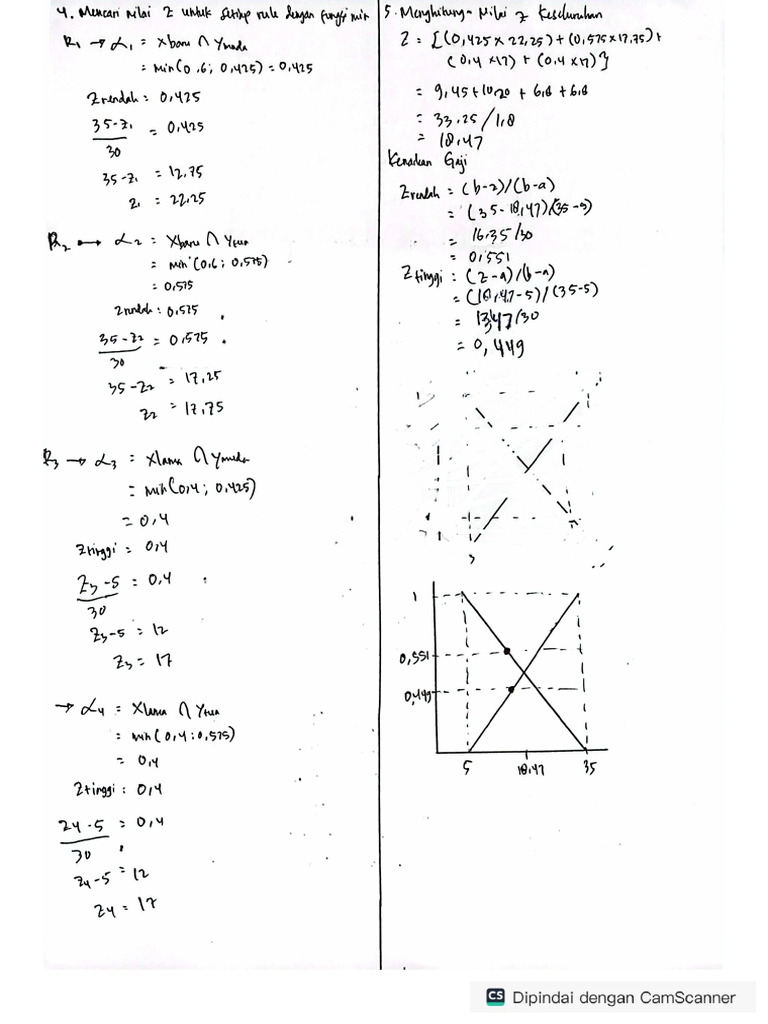 4. Mencari nilai z untuk setiap rule dengan fungsi min
R₁ → α₁ = Xbaru ∩ Ymuda
= min(0.6; 0,425) = 0,425
Zrendah = 0,425
35-z₁ / 30 = 0,425
35-z₁ = 12,75
z₁ = 22,25
R₂ → α₂ = Xbaru ∩ Ytua
= min(0,6; 0,575)
= 0,575
Zrendah = 0,575
35-z₂ / 30 = 0,575
35-z₂ = 17,25
z₂ = 17,75
R₃ → α₃ = Xlama ∩ Ymuda
= min(0,4; 0,425)
= 0,4
Ztinggi = 0,4
z₃-5 / 30 = 0,4
z₃-5 = 12
z₃ = 17
→ α₄ = Xlama ∩ Ytua
= min(0,4; 0,575)
= 0,4
Ztinggi = 0,4
z4-5 / 30 = 0,4
z₄-5 = 12
z4 = 17
5. Menghitung Nilai z Keseluruhan
Z = {(0,425 x 22,25) + (0,575 x 17,75) +
(0,4 x 17) + (0,4 x 17)}
= 9,45 + 10,20 + 6,8 + 6,8
= 33,25 / 1,8
= 18,47
Kenaikan Gaji
Zrendah = (b-z)/(b-a)
= (35-18,47)/(35-5)
= 16,35/30
= 0,551
Ztinggi = (z-a)/(b-a)
= (18,47-5)/(35-5)
= 13,47/30
= 0,449
1
0,551
0,449
5 18,47 35
CS Dipindai dengan CamScanner